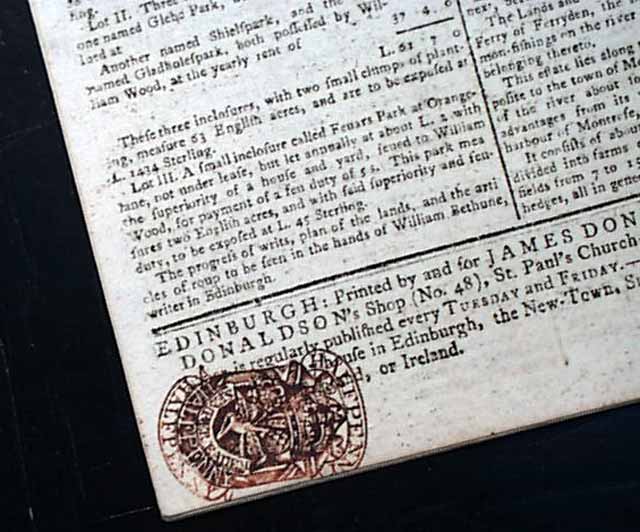 Lot II. Three
one named Glebe Park,
lord at
Another named Shielspark, and the
named Gladholespark, both possessed by Wil-
liam Wood, at the yearly rent of
37 4 0
L. 61 7 0
These three inclosures, with two small clumps of plant-
ing, measure 63 English acres, and are to be exposed at
L. 1434 Sterling.
Lot III. A small inclosure called Feuars Park at Orange-
lane, not under lease, but let annually at about L. 2 with
the superiority of a house and yard, feued to William
Wood, for payment of a feu duty of 5 s. This park mea
sures two English acres, and with said superiority and feu-
duty, to be exposed at L. 45 Sterling.
The progress of writs, plan of the lands, and the arti
cles of roup to be seen in the hands of William Bethune,
writer in Edinburgh.
The Lands and
Ferry of Ferryden, the
mon-fishings on the river
belonging thereto.
This estate lies along
posite to the town of Mon
of the river about the
advantages from its
harbour of Montrose
It consists of abou
divided into farms
fields from 7 to 1
hedges, all in gene
EDINBURGH: Printed by and for JAMES DON
DONALDSON's Shop (No. 48), St. Paul's Church
is regularly published every TUESDAY and FRIDAY.
house in Edinburgh, the New-Town, S
, or Ireland.
HALFPENNY